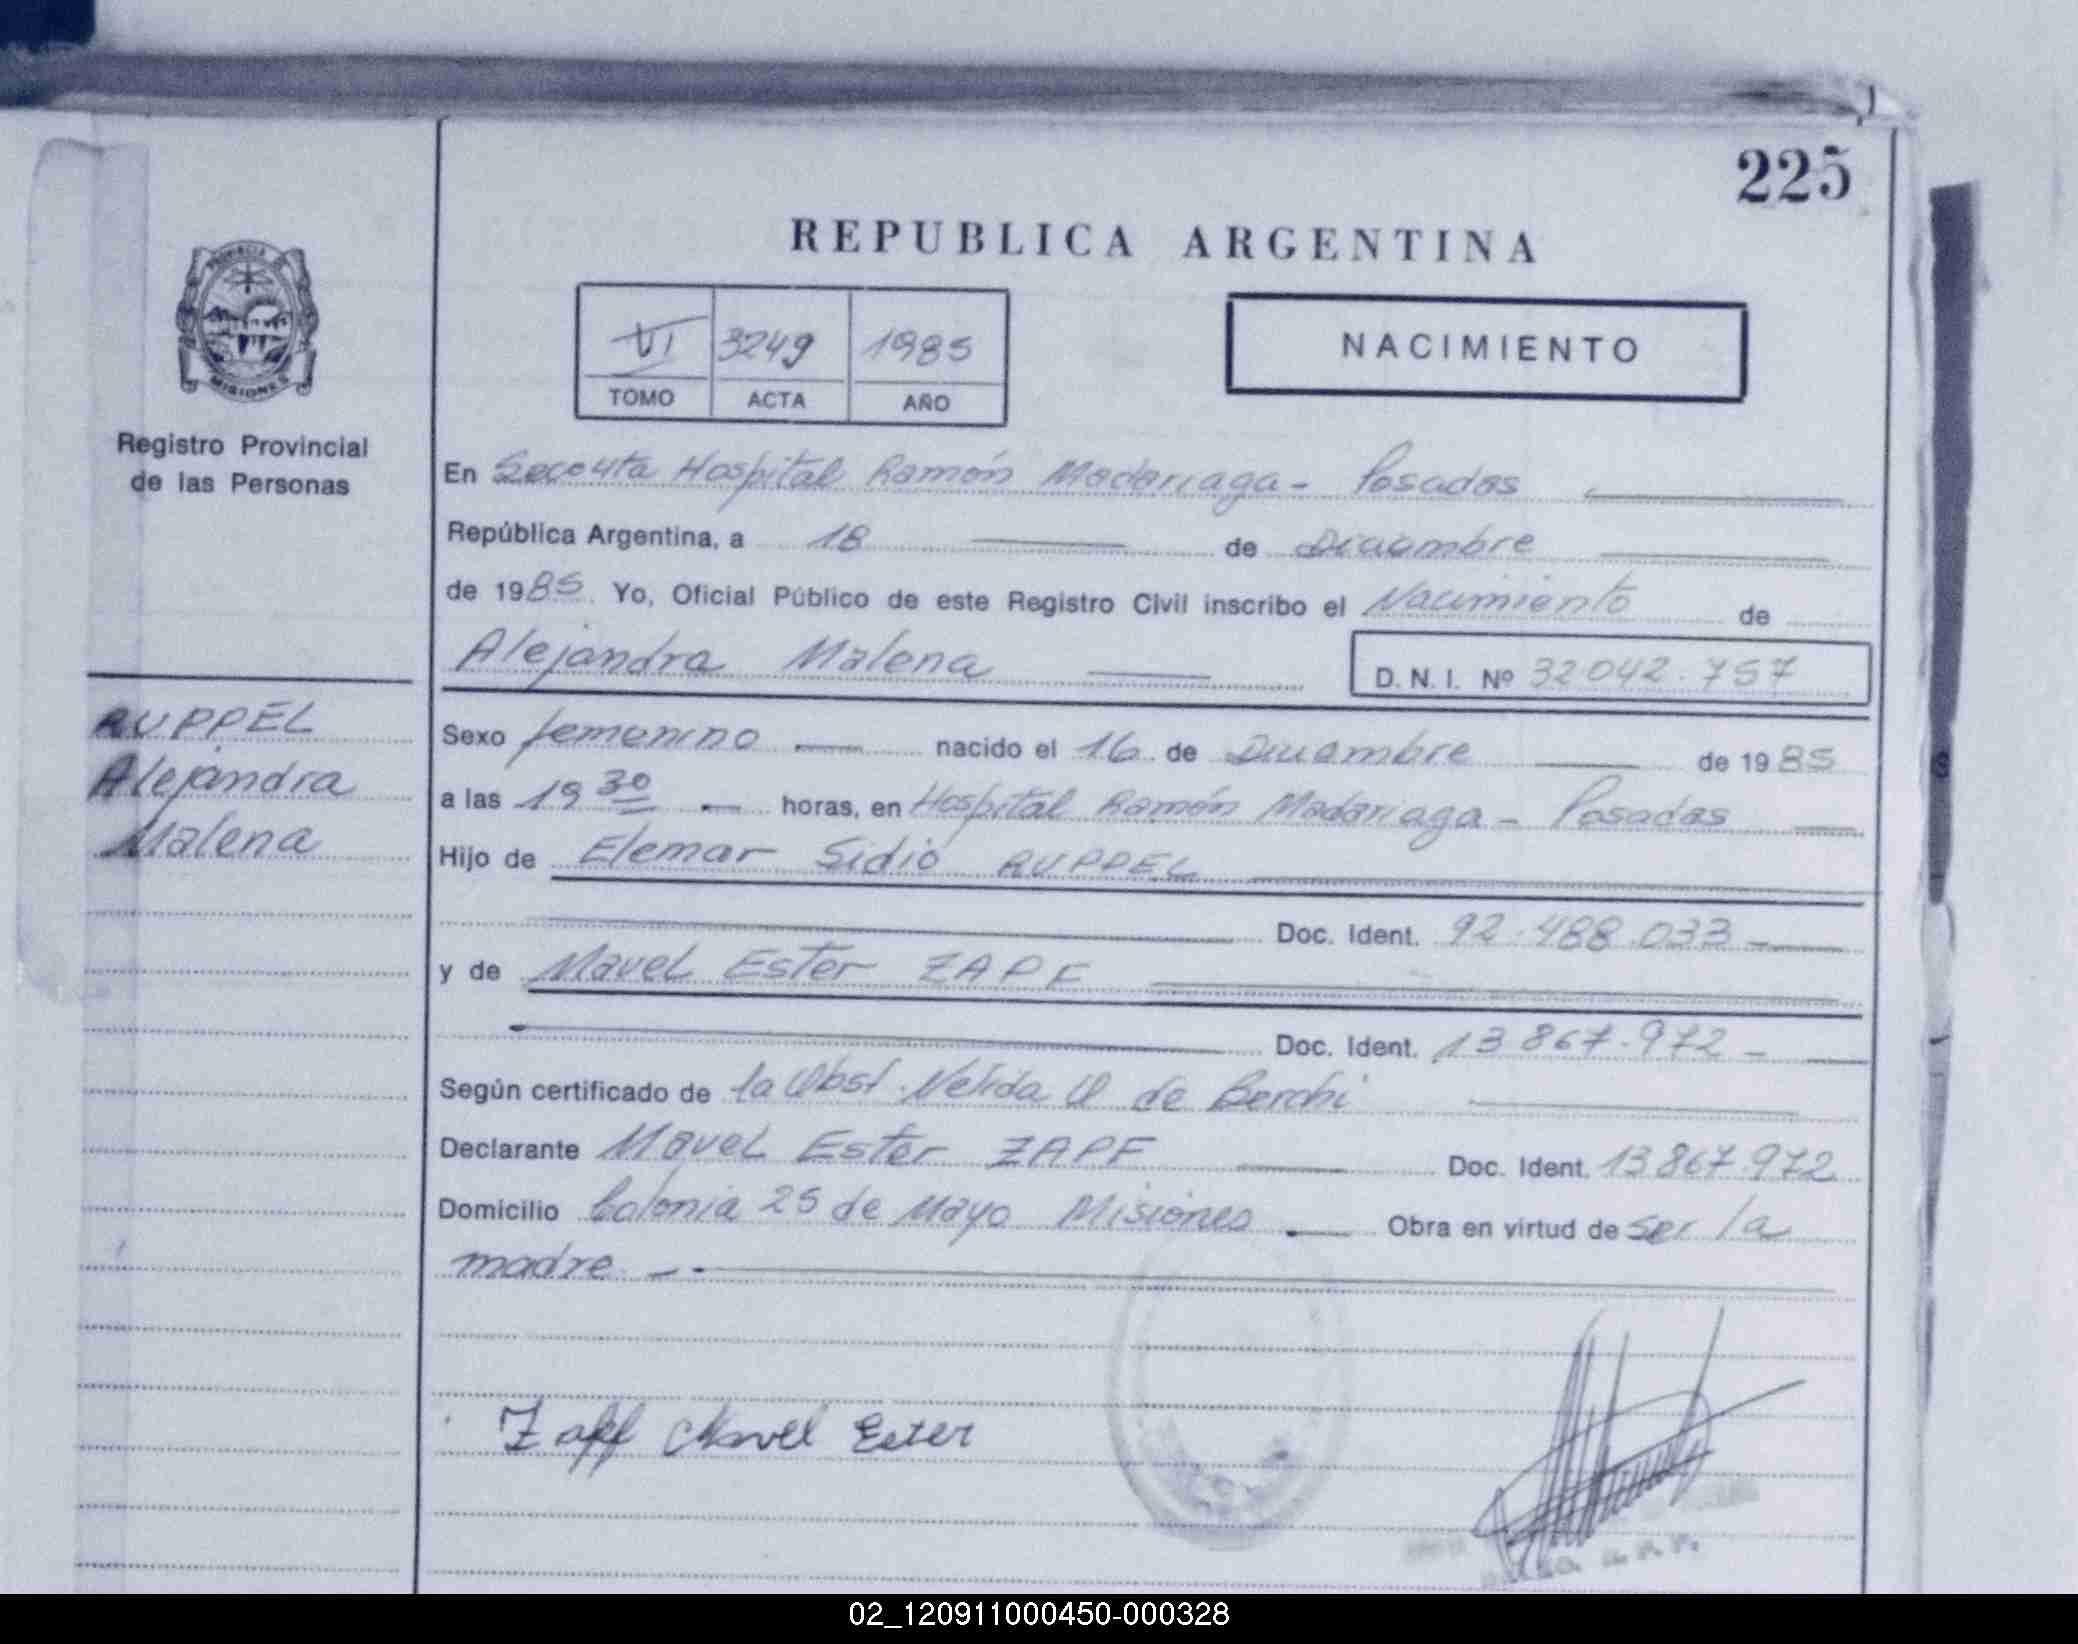 225
REPUBLICA ARGENTINA
PROVINCIA DE
MISIONES
Registro Provincial
de las Personas
VI 3249 1985
TOMO ACTA AÑO
NACIMIENTO
En Hospital Ramón Madariaga - Posadas
República Argentina, a 18 de Diciembre
de 1985. Yo, Oficial Público de este Registro Civil inscribo el Nacimiento de
Alejandra Malena D.N.I. Nº 32042.757
RUPPEL
Alejandra
Malena
Sexo femenino nacido el 16 de Diciembre de 1985
a las 19 30 horas, en Hospital Ramón Madariaga - Posadas
Hijo de Elemar Sidio RUPPEL
Doc. Ident. 92.488.033 -
y de Mavel Ester ZAPF
Doc. Ident. 13867.972 -
Según certificado de la Obst. Nelida de
Declarante Mavel Ester ZAPF Doc. Ident. 13867.972
Domicilio Colonia 25 de Mayo Misiones Obra en virtud de ser la
madre -
Zapf Mavel Ester
02_120911000450-000328